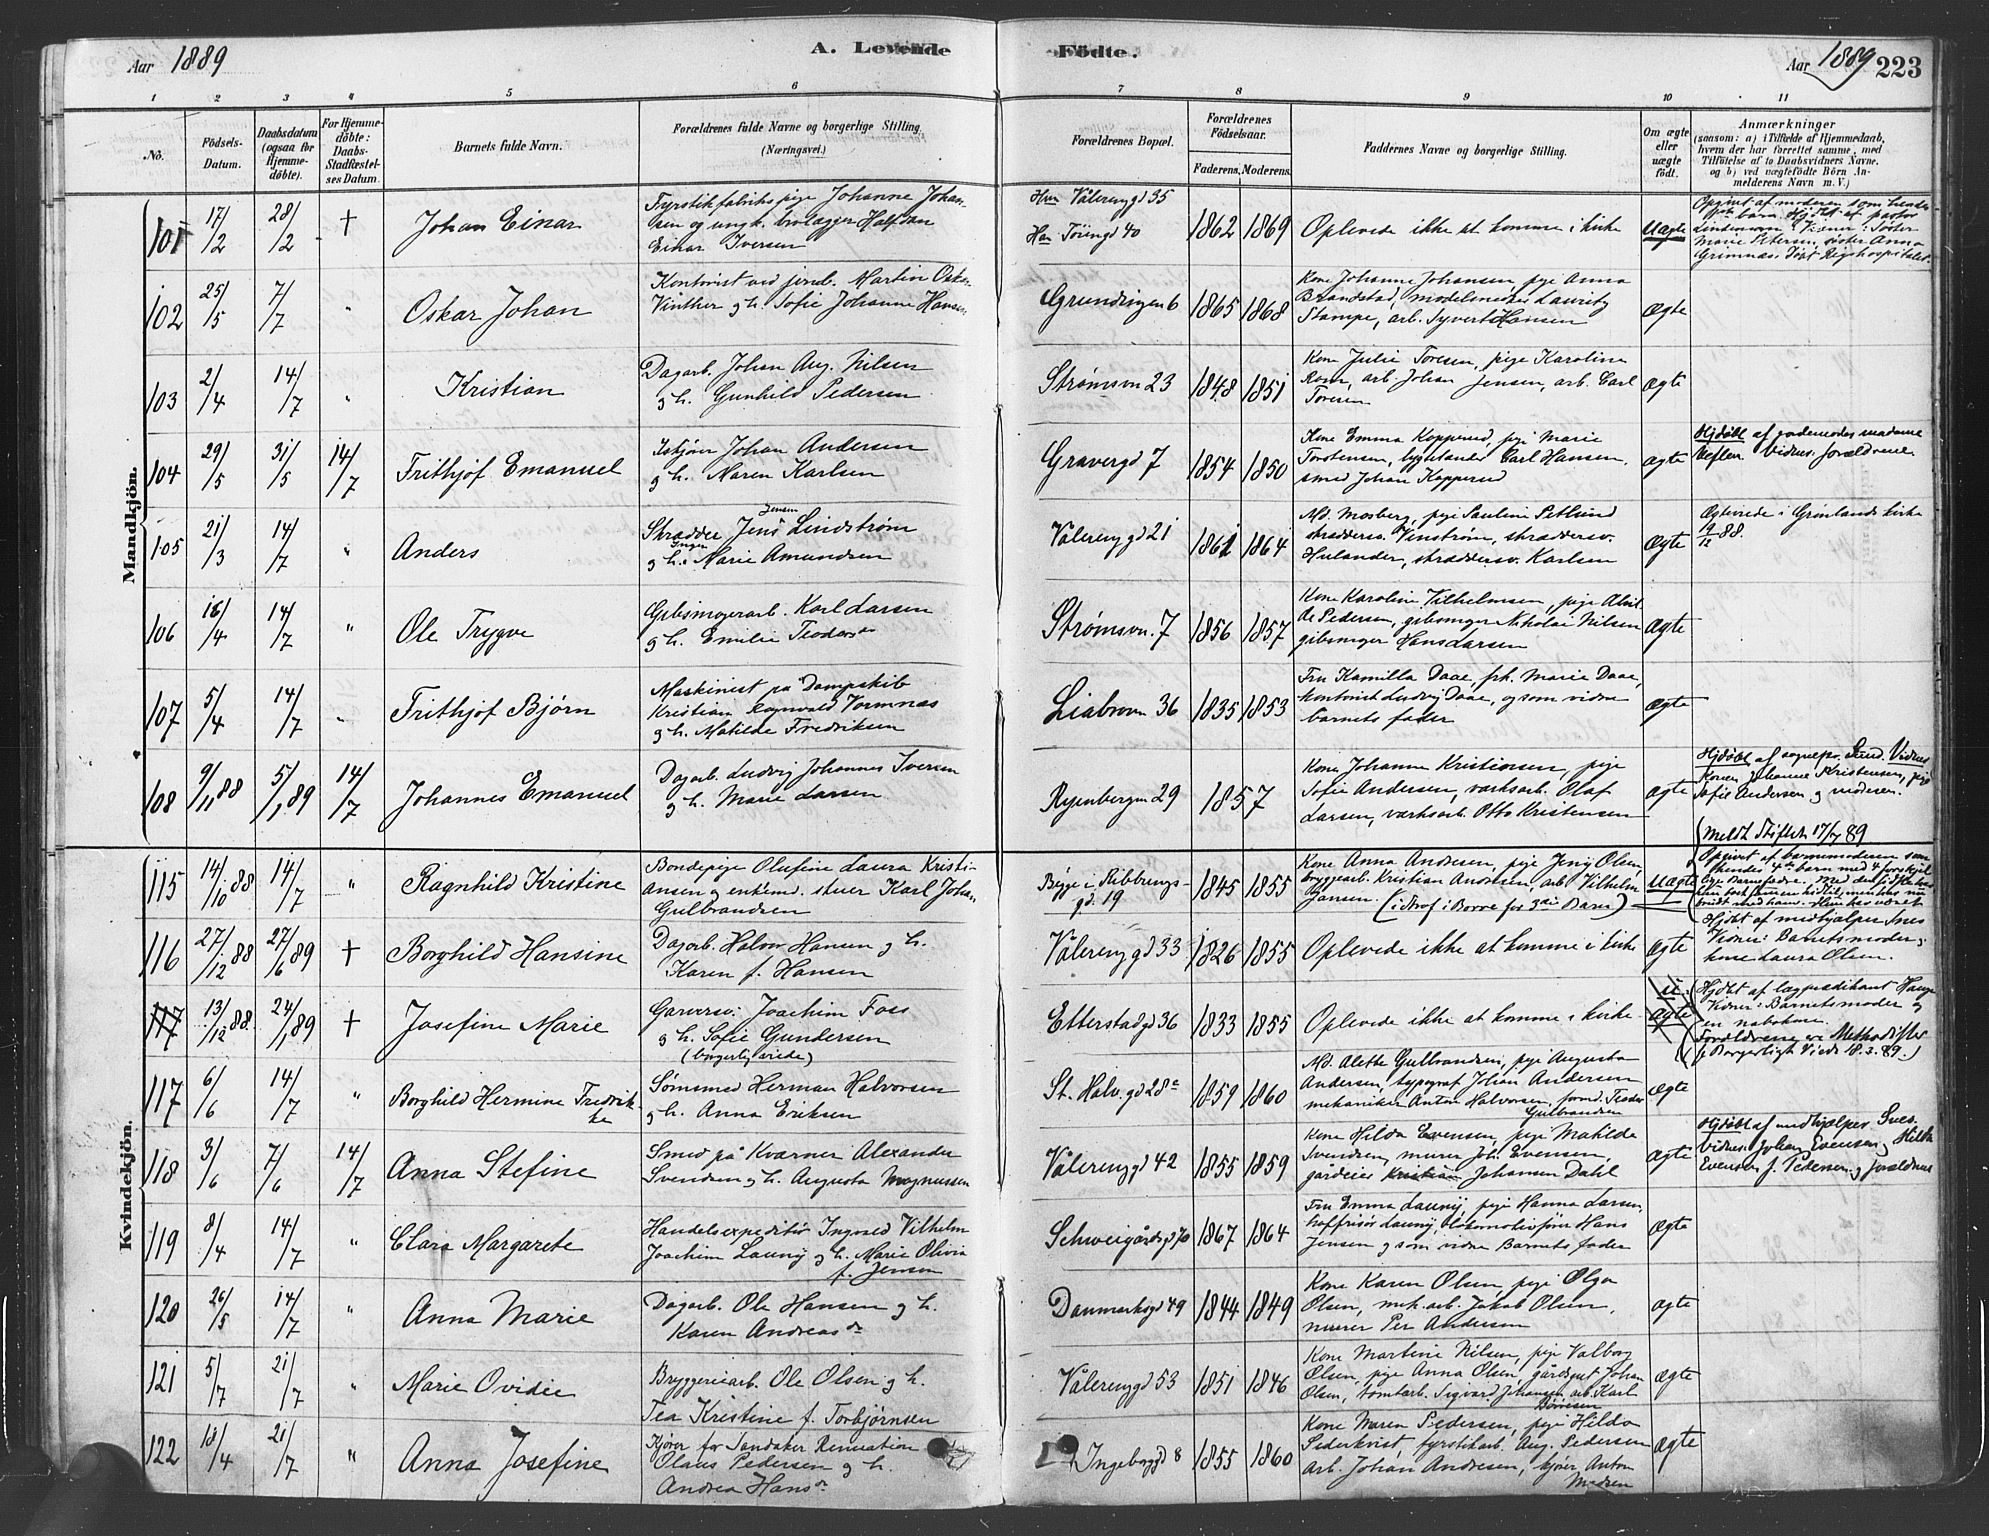 Aar 1889
A. Levende
Födte.
Aar 1889
223
1 2 3 4 5 6 7 8 9 10 11
No.
Födsels-
Datum.
Daabsdatum
(ogsaa for
Hjemme-
döbte).
For Hjemme-
döbte:
Daabs-
Stadfæstel-
ses Datum.
Barnets fulde Navn.
Forældrenes fulde Navne og borgerlige Stilling.
(Næringsvei.)
Forældrenes Bopæl.
Forældrenes
Födselsaar.
Faderens. Moderens.
Faddernes Navne og borgerlige Stilling.
Om ægte
eller
uægte
födt.
Anmærkninger
(saasom: a) i Tilfælde af Hjemmedaab,
hvem der har forrettet samme, med
Tilföielse af to Daabsvidners Navne,
og b) ved uægtefödte Börn An-
melderens Navn m. V.)
Mandkjön.
101 17/2 28/2 † Johan Einar
Fyrstikfabrikspige Johanne Johan-
sen og ungk. brolægger Halfdan
Einar Iversen
Hun Vålerengd 35
Han Töiengd 40
1862 1869 Oplevede ikke at komme i kirke uægte
Opgivet af moderen som hendes
barn. Hjdbt af pastor
Vidner: Søster
Marie Petersen, søster Anna
Grimnæs. Født Rigshospitalet.
102 25/5 7/7 " Oskar Johan
Kontorist ved jernb. Martin Oskar
Vinther g h. Sofie Johanne Hansen
Grundingen 6 1865 1868
Kone Johanne Johansen, pige Anna
Brandstad, modelsnedker Lauritz
Stampe, arb. Syvert Hansen
Ægte
103 2/4 14/7 " Kristian
Dagarb. Johan Aug. Nilsen
g h. Gunhild Pedersen
Strømsvn 23 1848 1851
Kone Julie Toresen, pige Karoline
Roen, arb. Johan Jensen, arb. Carl
Toresen
ægte
104 29/5 31/5 14/7 Frithjof Emanuel
Johan Andersen
g h. Maren Karlsen
Gravergd 7 1854 1850
Kone Emma Kopperud, pige Marie
Torstensen, Carl Hansen,
smed Johan Kopperud
ægte
Hjdøbt af jordemoder madame
Vidner: forældrene
105 21/3 14/7 " Anders
Skrædder Jens Jensen Lindstrøm
g h. Inger Marie Amundsen
Vålerengd 21 1861 1864
Md. Mosberg, pige Pauline Petlund
skrædersv. Vinstrøm, skræddersv.
Hulander, skræddersv. Karlsen
Ægte
Ægteviede i Grønlands kirke
19/12 88.
106 16/4 14/7 " Ole Trygve
Gibsmagerarb. Karl Larsen
g h. Emilie Teodorsdr
Strømsvn. 7 1856 1857
Kone Karoline Vilhelmsen, pige Alvil-
de Pedersen, gibsmager Nikolai Nilsen
gibsmager Hans Larsen
Ægte
107 5/4 14/7 " Frithjof Bjørn
Maskinist på Dampskib
Kristian Ragnvald Vormnæs
g h. Matilde Fredriksen
Liabroen 36 1835 1853
Fru Kamilla Daae, frk. Marie Daae,
kontorist Ludvig Daae, og som vidne
barnets fader
Ægte
108 9/11 88 5/1 89 14/7 Johannes Emanuel
Dagarb. Ludvig Johannes Iversen
g h. Marie Larsen
Ryenbergen 29 1857
Kone Johanne Kristiansen, pige
Sofie Andersen, værksarb. Olaf
Larsen, værksarb. Otto Kristensen
ægte
Hjdøbt af sognepr. Sund. Vidner
Konen Johanne Kristensen, pige
Sofie Andersen g moderen.
(Meldt Stiftet 17/7 89
Kvindekjön.
115 14/10 88 14/7 " Ragnhild Kristine
Bondepige Olufine Laura Kristi-
ansen g enkemd. stuer Karl Johan
Gulbrandsen
Begge i Ribbeng-
gd. 19
1845 1855
Kone Anna Andresen, pige Jeny Olsen,
bryggearb. Kristian Andersen, arb. Vilhelm
Jansen. (i straf i Borre for 3die Barn)
uægte
Opgivet af barnemoderen som
hendes 4de barn med 4 forskjel
lige Barnefædre.
116 27/12 88 27/6 89 † Borghild Hansine
Dagarb. Halvor Hansen g h.
Karen f. Hansen
Vålerengd 33 1826 1855 Oplevede ikke at komme i kirke ægte
Hjdbt af medhjælper Snes
Vidner: Barnets moder g
kone Laura Olsen.
117 13/12 88. 24/1 89 † Josefine Marie
Garversv. Joachim Foss
g h. Sofie Gundersen
(borgerlig viede)
Etterstadgd 36 1833 1855 Oplevede ikke at komme i kirke. u. ægte
Hjdbt af lægprædikant Hauge
Vidner: Barnets moder g
en nabokone.
Forældrene ere Methodister
(g Borgerligt Viede 18.3.89.)
117 6/6 14/7 " Borghild Hermine Fredrik-
ke
Sømsmed Herman Halvorsen
g h. Anna Eriksen
St. Halv. gd 28a 1859 1860
Md. Alette Gulbrandsen, pige Augusta
Andersen, typograf Johan Andersen
mekaniker Anton Halvorsen, formd. Teodor
Gulbrandsen
Ægte
118 3/6 7/6 14/7 Anna Stefine
Smed på Kværner Alexander
Svendsen g h. Augusta Magnussen
Vålerengd 42 1855 1859
Kone Hilda Evensen, pige Matilde
Svendsen, murer Joh. Evensen,
gårdeier Kristian Johansen Dahl
ægte
Hjdøbt af medhjælper Snes.
Vidner: Johan Evensen g Hilda
Evensen f. Pedersen g forældrene
119 8/4 14/7 " Clara Margarete
Handelsexpeditør Ingvald Vilhelm
Joachim Launy g h. Marie Olivia
f. Jensen
Schweigårdsgd 70 1867 1864
Fru Emma Launy, pige Hanna Larsen,
Launy, lokomotivfører Hans
Jensen g som vidne Barnets fader
Ægte
120 26/5 14/7 " Anna Marie
Dagarb. Ole Hansen g h.
Karen Andreasdr
Danmarksgd 49 1844 1849
Kone Karen Olsen, pige Olga
Olsen, mek. arb. Jakob Olsen,
murer Per Andersen
ægte
121 5/7 21/7 " Marie Ovidie
Bryggeriearb. Ole Olsen g h.
Tea Kristine f. Torbjørnsen
Vålerengd 53 1851 1846
Kone Martine Nilsen, pige Valborg
Olsen, pige Anna Olsen, gårdsgut Johan
Olsen, tomtarb. Sigvard Johansen, arb. Karl
Børresen
Ægte
122 18/4 21/7 " Anna Josefine
Kjører for Sandaker Renovation
Olaus Pedersen g h.
Andrea Hansdr
Ingeborggd 8 1855 1860
Kone Maren Pedersen, pige Hilda
Sederkvist, fyrstikarb. Aug. Pedersen
arb. Johan Andresen, kjører Anton
Madsen
Ægte